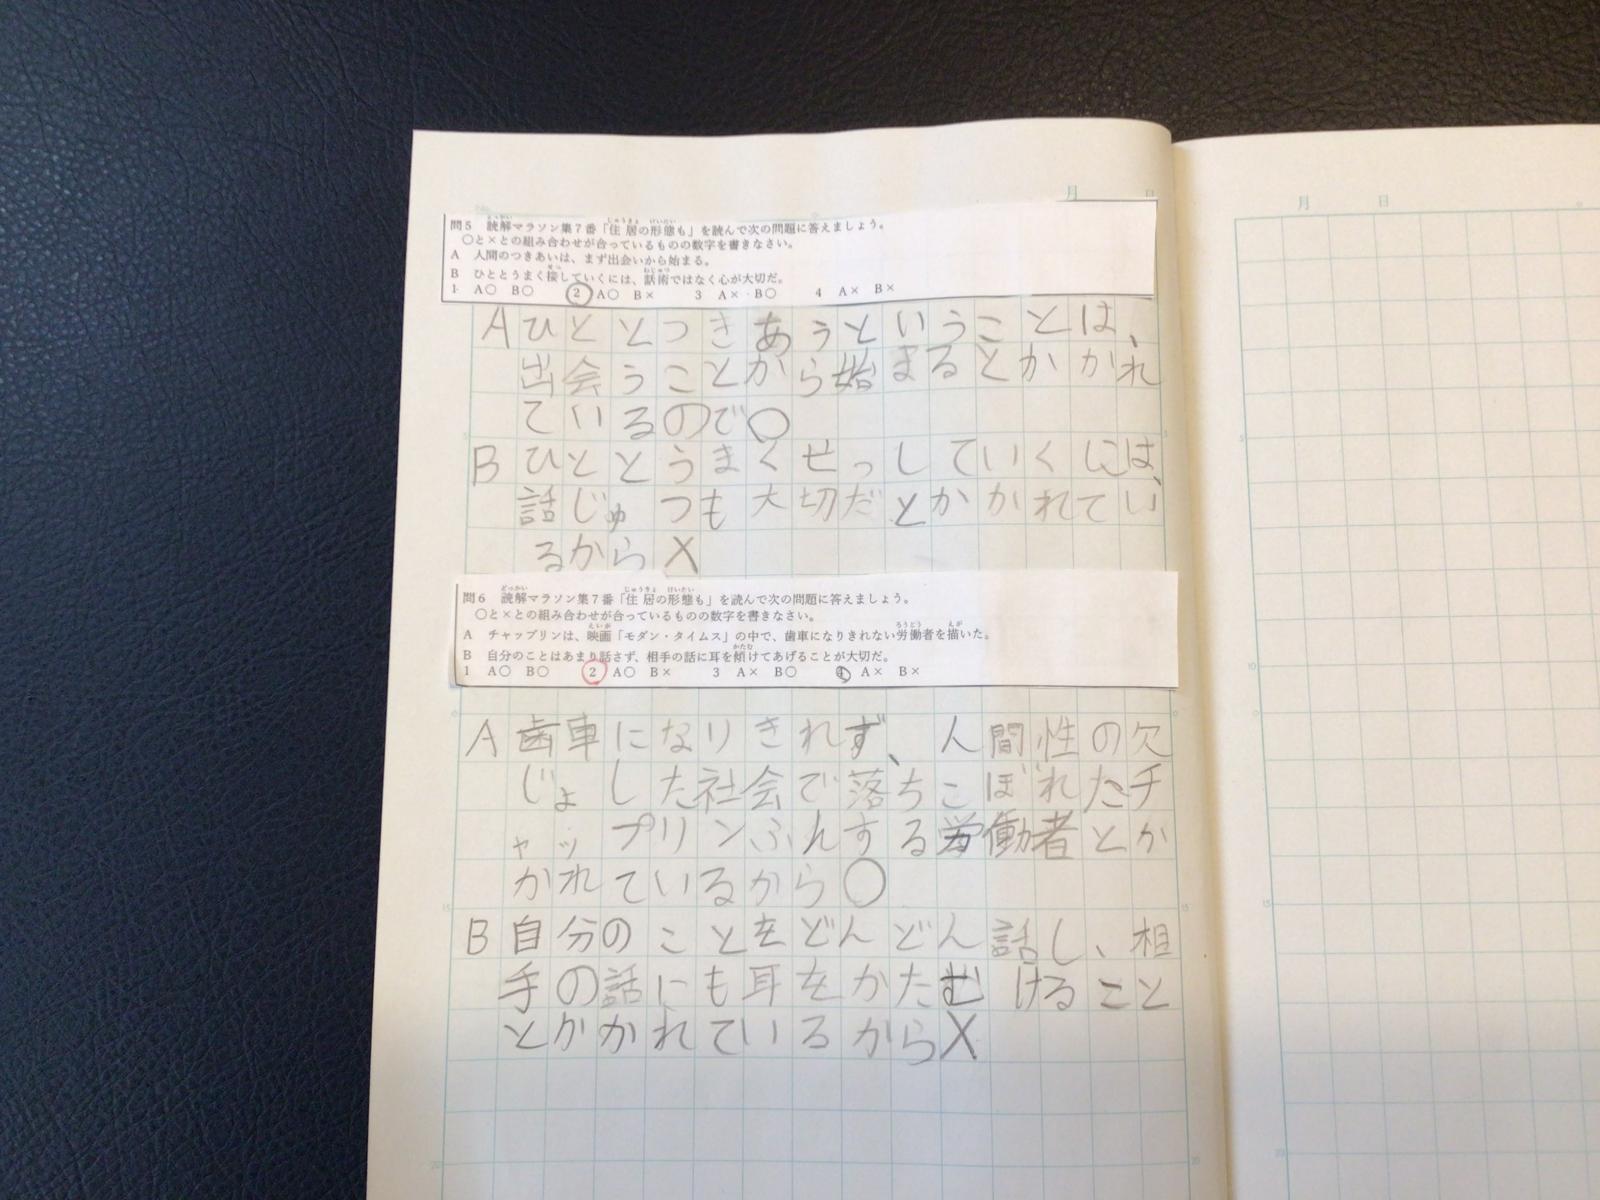 月 日
問5 読解マラソン集7番「住居の形態も」を読んで次の問題に答えましょう。
○と×との組み合わせが合っているものの数字を書きなさい。
A 人間のつきあいは、まず出会いから始まる。
B ひととうまく接していくには、話術ではなく心が大切だ。
1 A○ B○ 2 A○ B× 3 A× B○ 4 A× B×
Aひととつきあうということは、
出会うことから始まるとかかれ
ているので○
Bひととうまくせっしていくには、
話じゅつも大切だとかかれてい
るから×
問6 読解マラソン集7番「住居の形態も」を読んで次の問題に答えましょう。
○と×との組み合わせが合っているものの数字を書きなさい。
A チャップリンは、映画「モダン・タイムス」の中で、歯車になりきれない労働者を描いた。
B 自分のことはあまり話さず、相手の話に耳を傾けてあげることが大切だ。
1 A○ B○ 2 A○ B× 3 A× B○ 4 A× B×
A歯車になりきれず、人間性の欠
じょした社会で落ちこぼれたチ
ャップリンふんする労働者とか
かれているから○
B自分のことをどんどん話し、相
手の話にも耳をかたむけること
とかかれているから×
月 日